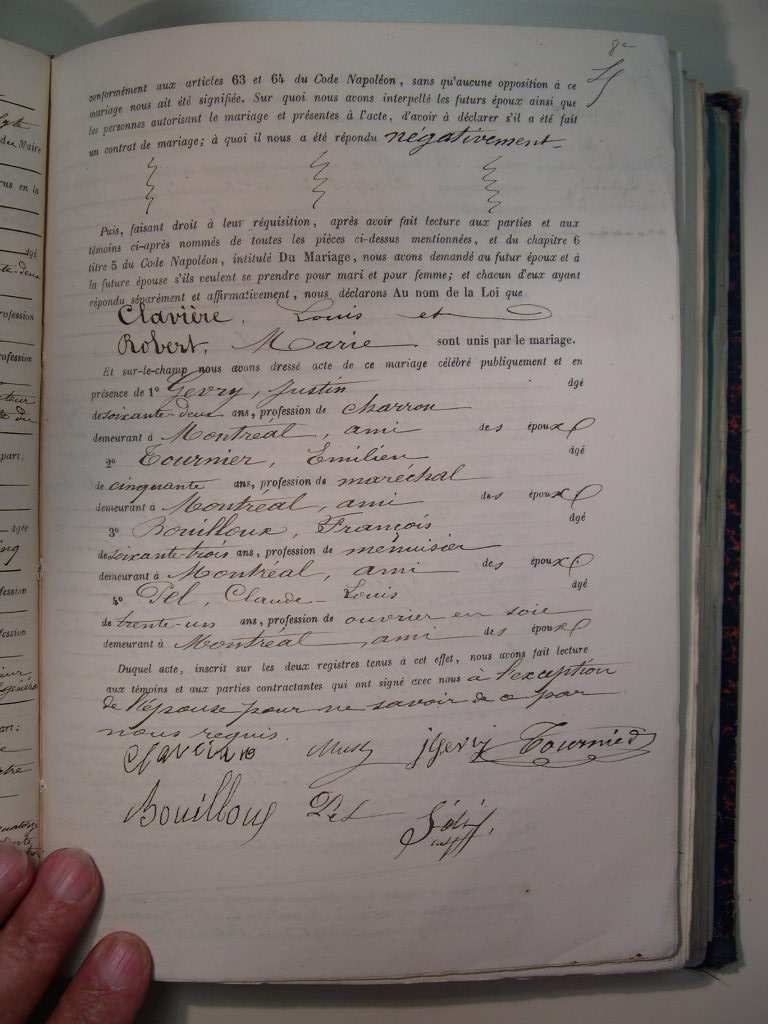 8e
conformément aux articles 63 et 64 du Code Napoléon, sans qu'aucune opposition à ce
mariage nous ait été signifiée. Sur quoi nous avons interpellé les futurs époux ainsi que
les personnes autorisant le mariage et présentes à l'acte, d'avoir à déclarer s'il a été fait
un contrat de mariage; à quoi il nous a été répondu négativement.
Puis, faisant droit à leur réquisition, après avoir fait lecture aux parties et aux
témoins ci-après nommés de toutes les pièces ci-dessus mentionnées, et du chapitre 6
titre 5 du Code Napoléon, intitulé Du Mariage, nous avons demandé au futur époux et à
la future épouse s'ils veulent se prendre pour mari et pour femme; et chacun d'eux ayant
répondu séparément et affirmativement, nous déclarons Au nom de la Loi que
Clavière, Louis et
Robert, Marie sont unis par le mariage.
Et sur-le-champ nous avons dressé acte de ce mariage célébré publiquement et en
présence de 1º Gevry, Justin âgé
de soixante-deux ans, profession de charron
demeurant à Montréal, ami des époux
2º Tournier, Emilien âgé
de cinquante ans, profession de maréchal
demeurant à Montréal, ami des époux
3º Bouilloux, François âgé
de soixante-trois ans, profession de menuisier
demeurant à Montréal, ami des époux
4º Pel, Claude-Louis âgé
de trente-un ans, profession de ouvrier en soie
demeurant à Montréal, ami des époux
Duquel acte, inscrit sur les deux registres tenus à cet effet, nous avons fait lecture
aux témoins et aux parties contractantes qui ont signé avec nous à l'exception
de l'épouse pour ne savoir de ce par
nous requis.
jGevry Tournier
Bouilloux Pel